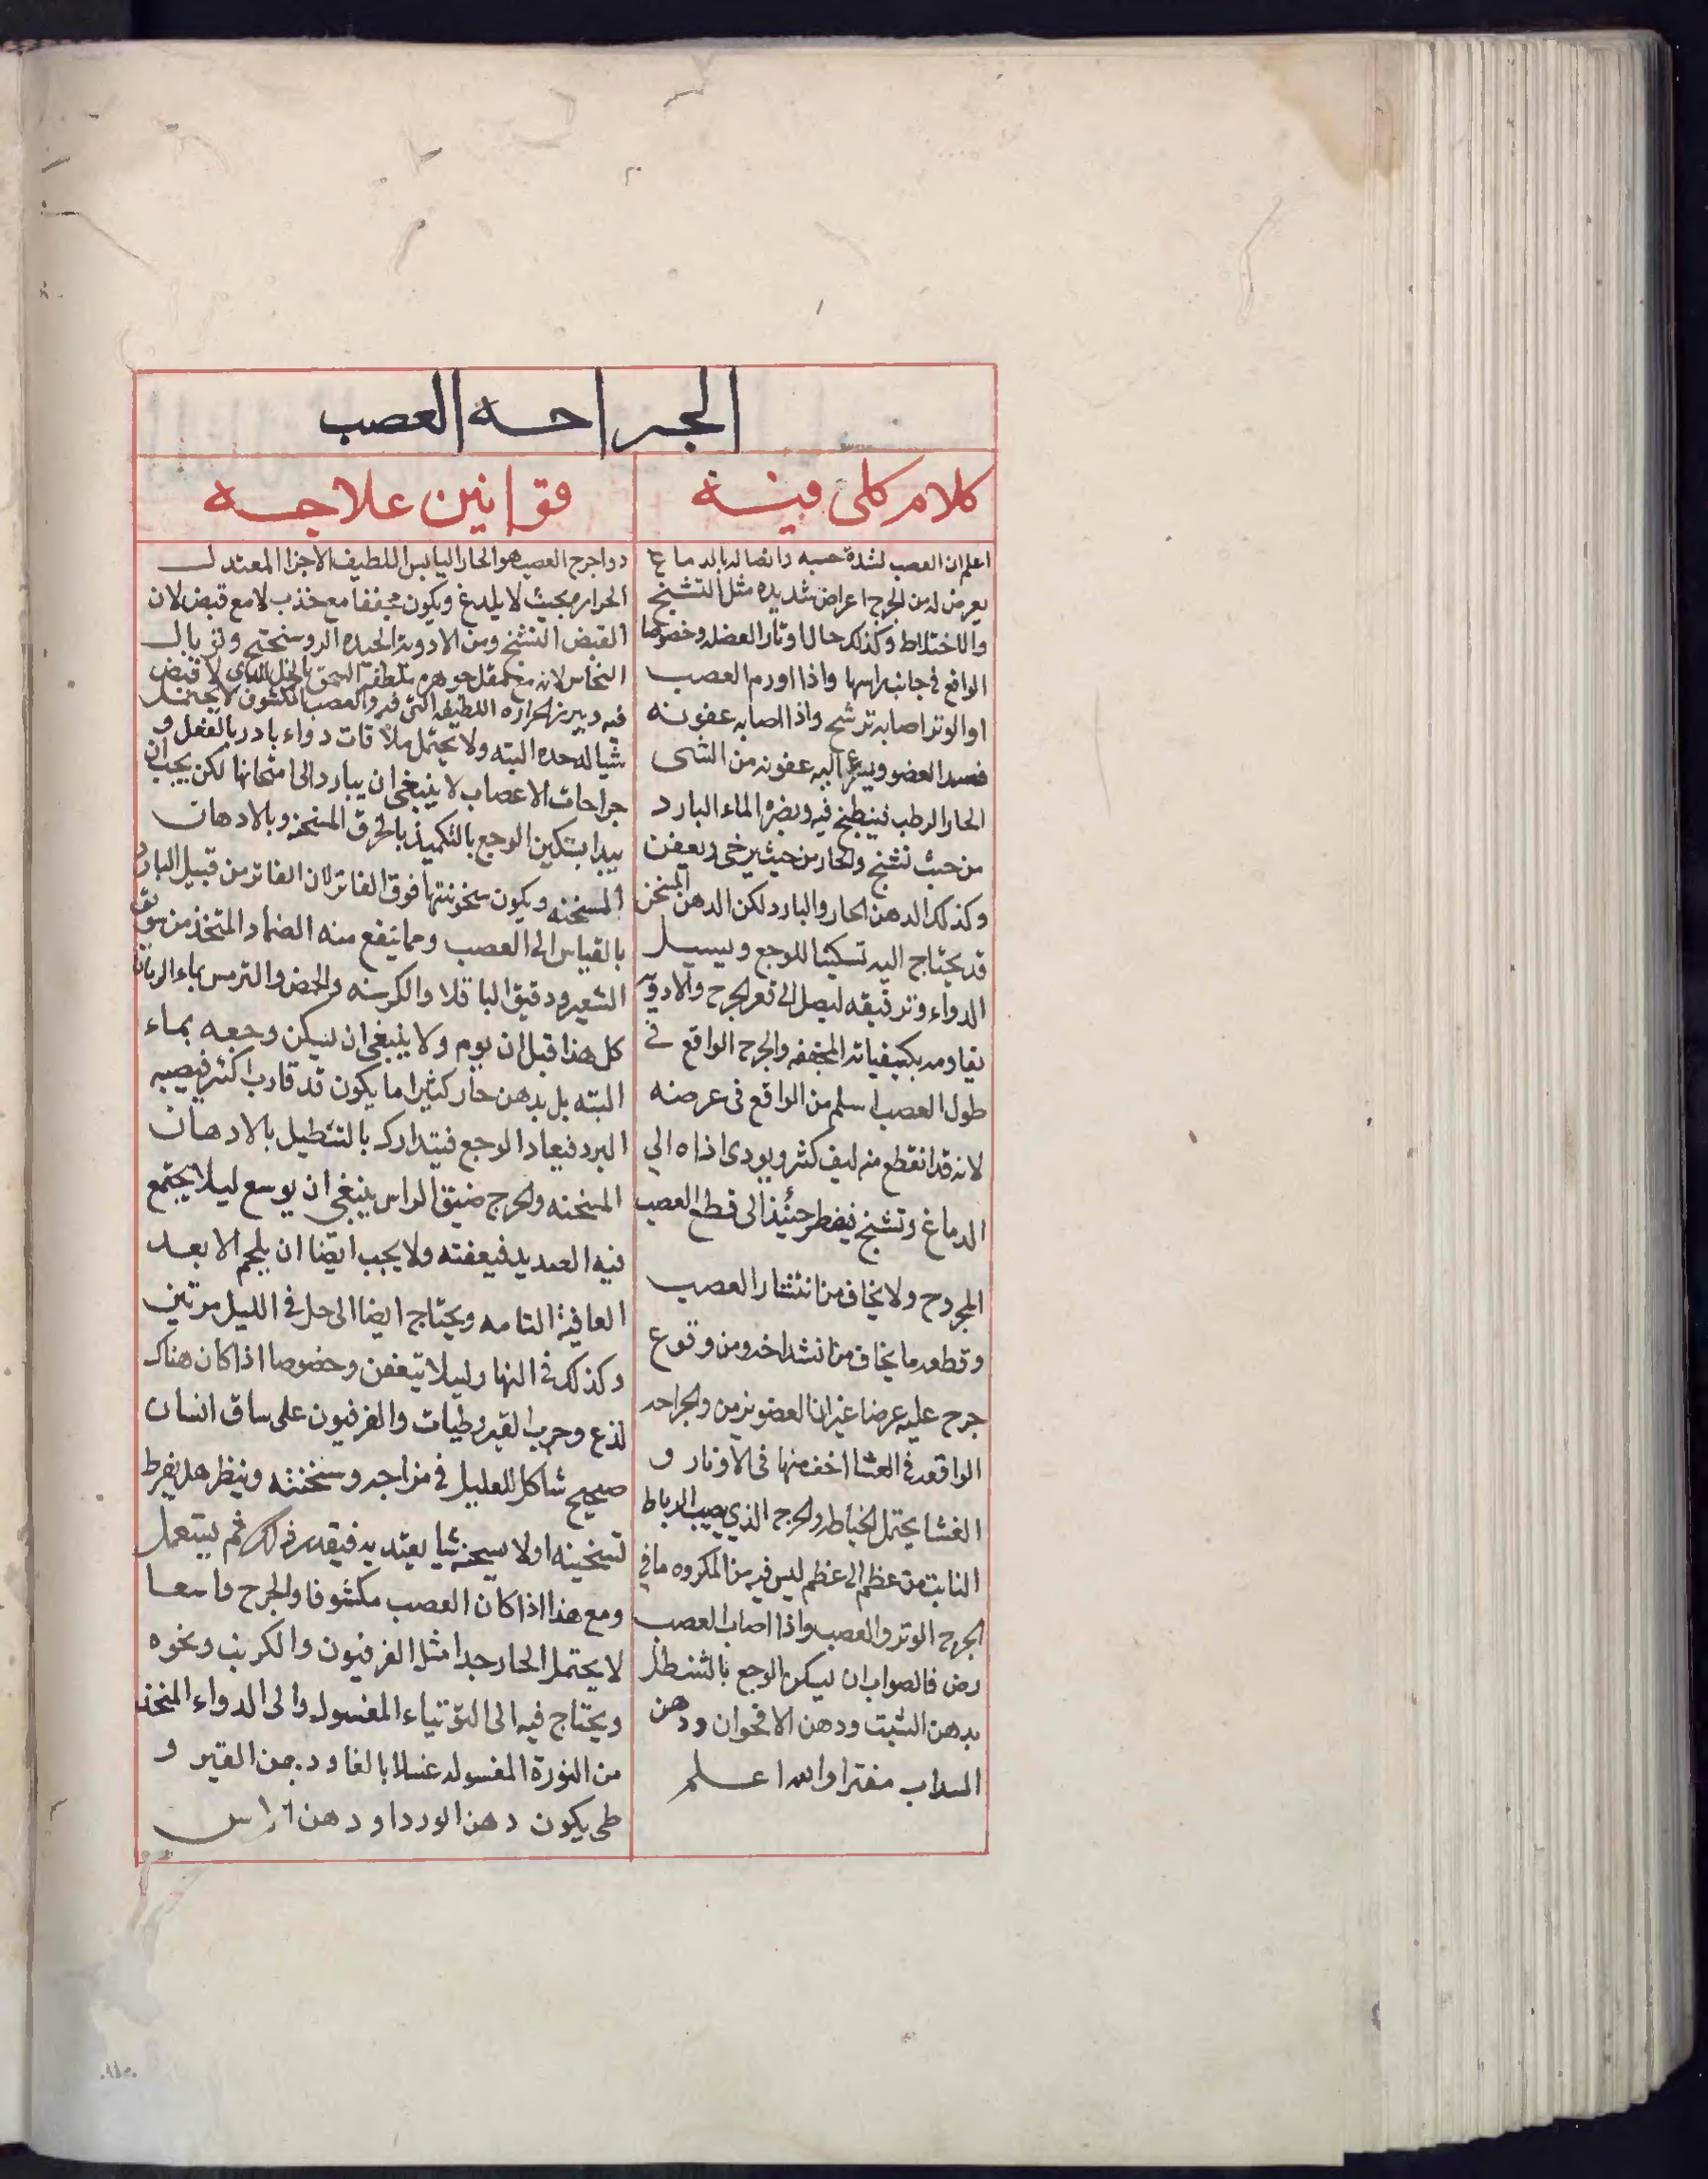 الجراحه العصب
كلام كلى فيه
اعلم ان العصب لشدة حسه واتصاله بالدماغ
يعرض له من الجرح اعراض شديده مثل التشنج
والاختلاط وكذلك حال اوتار العضل وخصوصا
الواقع في جانب راسها واذا اورم العصب
او الوتر اصابه تشنج واذا اصابه عفونه
فسد العضو ويسرع اليه عفونه من الشى
الحار الرطب فينطبخ فيه ويضره الماء البارد
من حيث تشنج والحار من حيث يرخى ويعفن
وكذلك الدهن الحار والبارد لكن الدهن المسخن
قد يحتاج اليه تسكينا للوجع وليسيل
الدواء وترقيقه ليصل الى قعر الجرح والادويه
يقاومه بكيفياته المجففه والجرح الواقع في
طول العصب اسلم من الواقع فى عرضه
لانه قد انقطع منه ليف كثير ويودى اذاه الي
الدماغ وتشنج فيضطر حينئذ الى قطع العصب
المجروح ولا يخاف من انتشار العصب
وقطعه ما يخاف من انشداخه ومن وقوع
جرح عليه عرضا غير ان العضو يزمن والجراحه
الواقعه في الغشا اخف منها فى الاوتار و
الغشا يحتمل الخياطه والجرح الذي يصيب الرباط
النابت من عظم الى عظم ليس فيه من المكروه ما في
الجرح الوتر والعصب واذا اصاب العصب
رض فالصواب ان يسكن الوجع بالتنطيل
بدهن الشبت ودهن الاقحوان ودهن
السداب مفترا والله اعلم
قوانين علاجه
دوا جرح العصب هو الحار اليابس اللطيف الاجزا المعتدل
الحراره بحيث لا يلدغ ويكون مجففا مع جذب لا مع قبض لان
القبض التشنج ومن الادويه الجيده الروسختج وتوبال
النحاس لانه مع ثقل جوهره يلطفه السحق بالخل الذي لا قبض
فيه ويبرز الحراره اللطيفه التى فيه والعصب المكشوف لا يحتمل
شيا له حده البته ولا يحتمل ملاقات دواء بارد بالفعل و
جراحات الاعصاب لا ينبغى ان يبادر الى امتحانها لكن يجب ان
يبدا بتسكين الوجع بالتكميد بالخرق المسخنه وبالادهان
المسخنه ويكون سخونتها فوق الفاتر لان الفاتر من قبيل البارد
بالقياس الى العصب ومما ينفع منه الضماد المتخذ من سويق
الشعير ودقيق الباقلا والكرسنه والحمص والترمس بماء الرمان
كل هذا قبل ان يورم ولا ينبغى ان يسكن وجعه بماء
البته بل بدهن حار كثيرا ما يكون قد قارب اكثر فيصيبه
البرد فيعاد الوجع فيتدارك بالتنطيل بالادهان
المسخنه والجرح ضيق الراس ينبغى ان يوسع ليلا يجتمع
فيه الصديد فيعفنه ولا يجب ايضا ان يلحم الا بعد
العافية التامه ويحتاج ايضا الى حل في الليل مرتين
وكذلك في النهار ليلا يتعفن وخصوصا اذا كان هناك
لذع وجرب القيروطيات والفرفيون على ساق انسان
صحيح شاكل للعليل في مزاجه وسخنته وينظر هل يفرط
تسخينه اولا يسخن شيا يعتد به فيقدر ذلك ثم يستعمل
ومع هذا اذا كان العصب مكشوفا والجرح واسعا
لا يحتمل الحار جدا مثل الفرفيون والكبريت ونحوه
ويحتاج فيه الى التوتياء المغسول والى الدواء المتخذ
من النورة المغسوله غسلا بالغا و القير و
طى يكون دهن الورد او دهن الاس